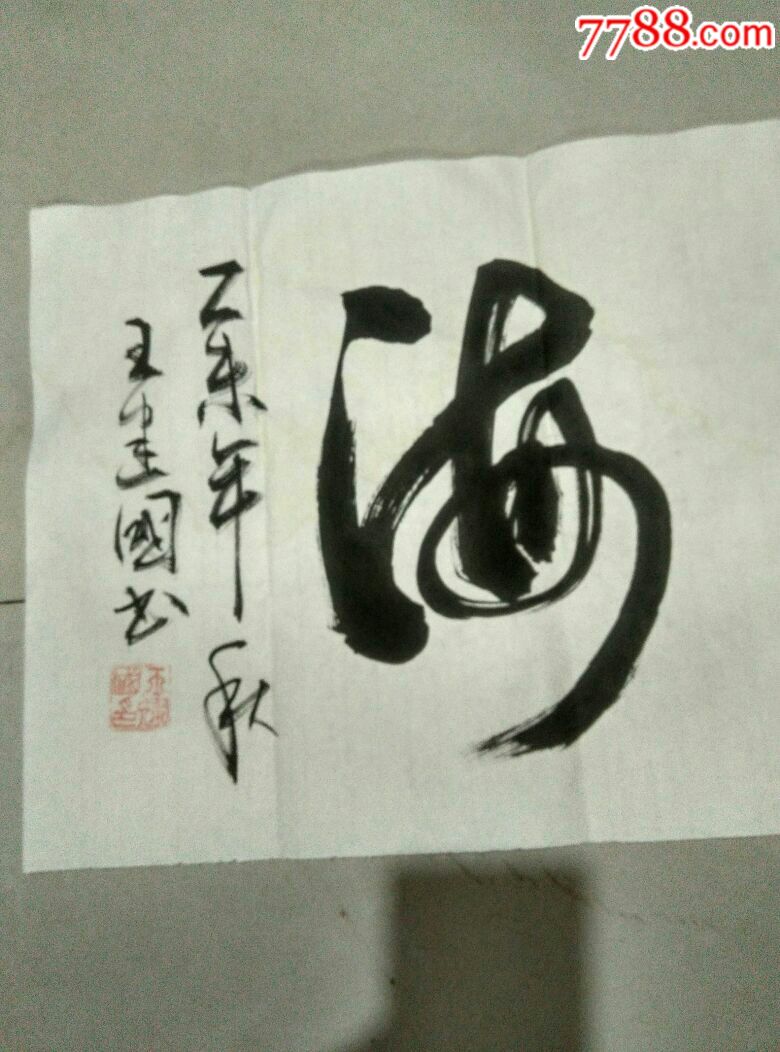 7788.com
海
乙未年秋
王建國书